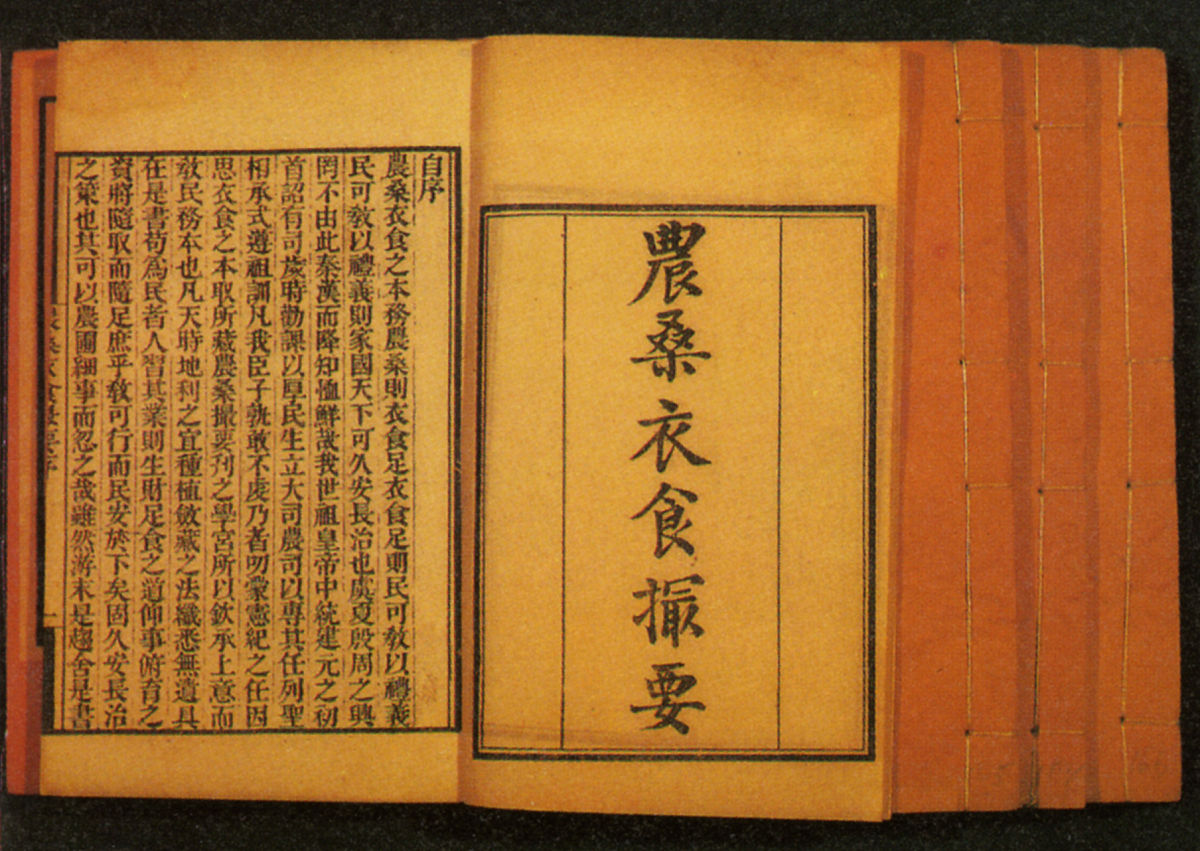 農桑衣食撮要
自序
農桑衣食之本務農桑則衣食足衣食足則民可敎以禮義
民可敎以禮義則家國天下可久安長治也虞夏殷周之興
罔不由此秦漢而降知恤鮮哉我世祖皇帝中統建元之初
首詔有司歲時勸課以厚民生立大司農司以專其任列聖
相承式遵祖訓凡我臣子孰敢不虔乃者叨蒙憲紀之任因
思衣食之本取所藏農桑撮要刋之學宮所以欽承上意而
敎民務本也凡天時地利之宜種植斂藏之法纖悉無遺具
在是書苟爲民者人習其業則生財足食之道仰事俯育之
資將隨取而隨足庶乎敎可行而民安於下矣固久安長治
之策也其可以農圃細事而忽之哉雖然游末是趨舍是書
農桑衣食撮要序
一